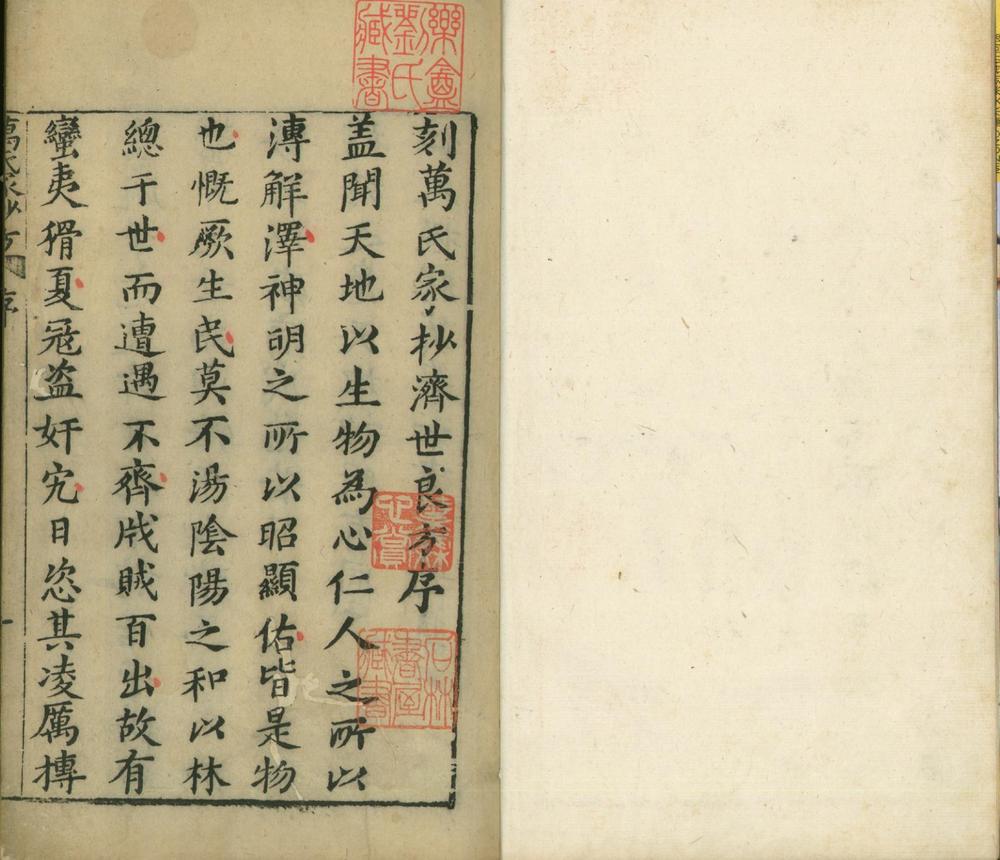 刻萬氏家抄濟世良方序
盖聞天地以生物為心仁人之所以
溥解澤神明之所以昭顯佑皆是物
也慨厥生民莫不湯陰陽之和以林
總于世而遭遇不齊戕賊百出故有
蠻夷猾夏冦盗奸宄日恣其凌厲摶
萬氏家抄方 序
一
樂盦劉氏藏書
石林書屋藏書